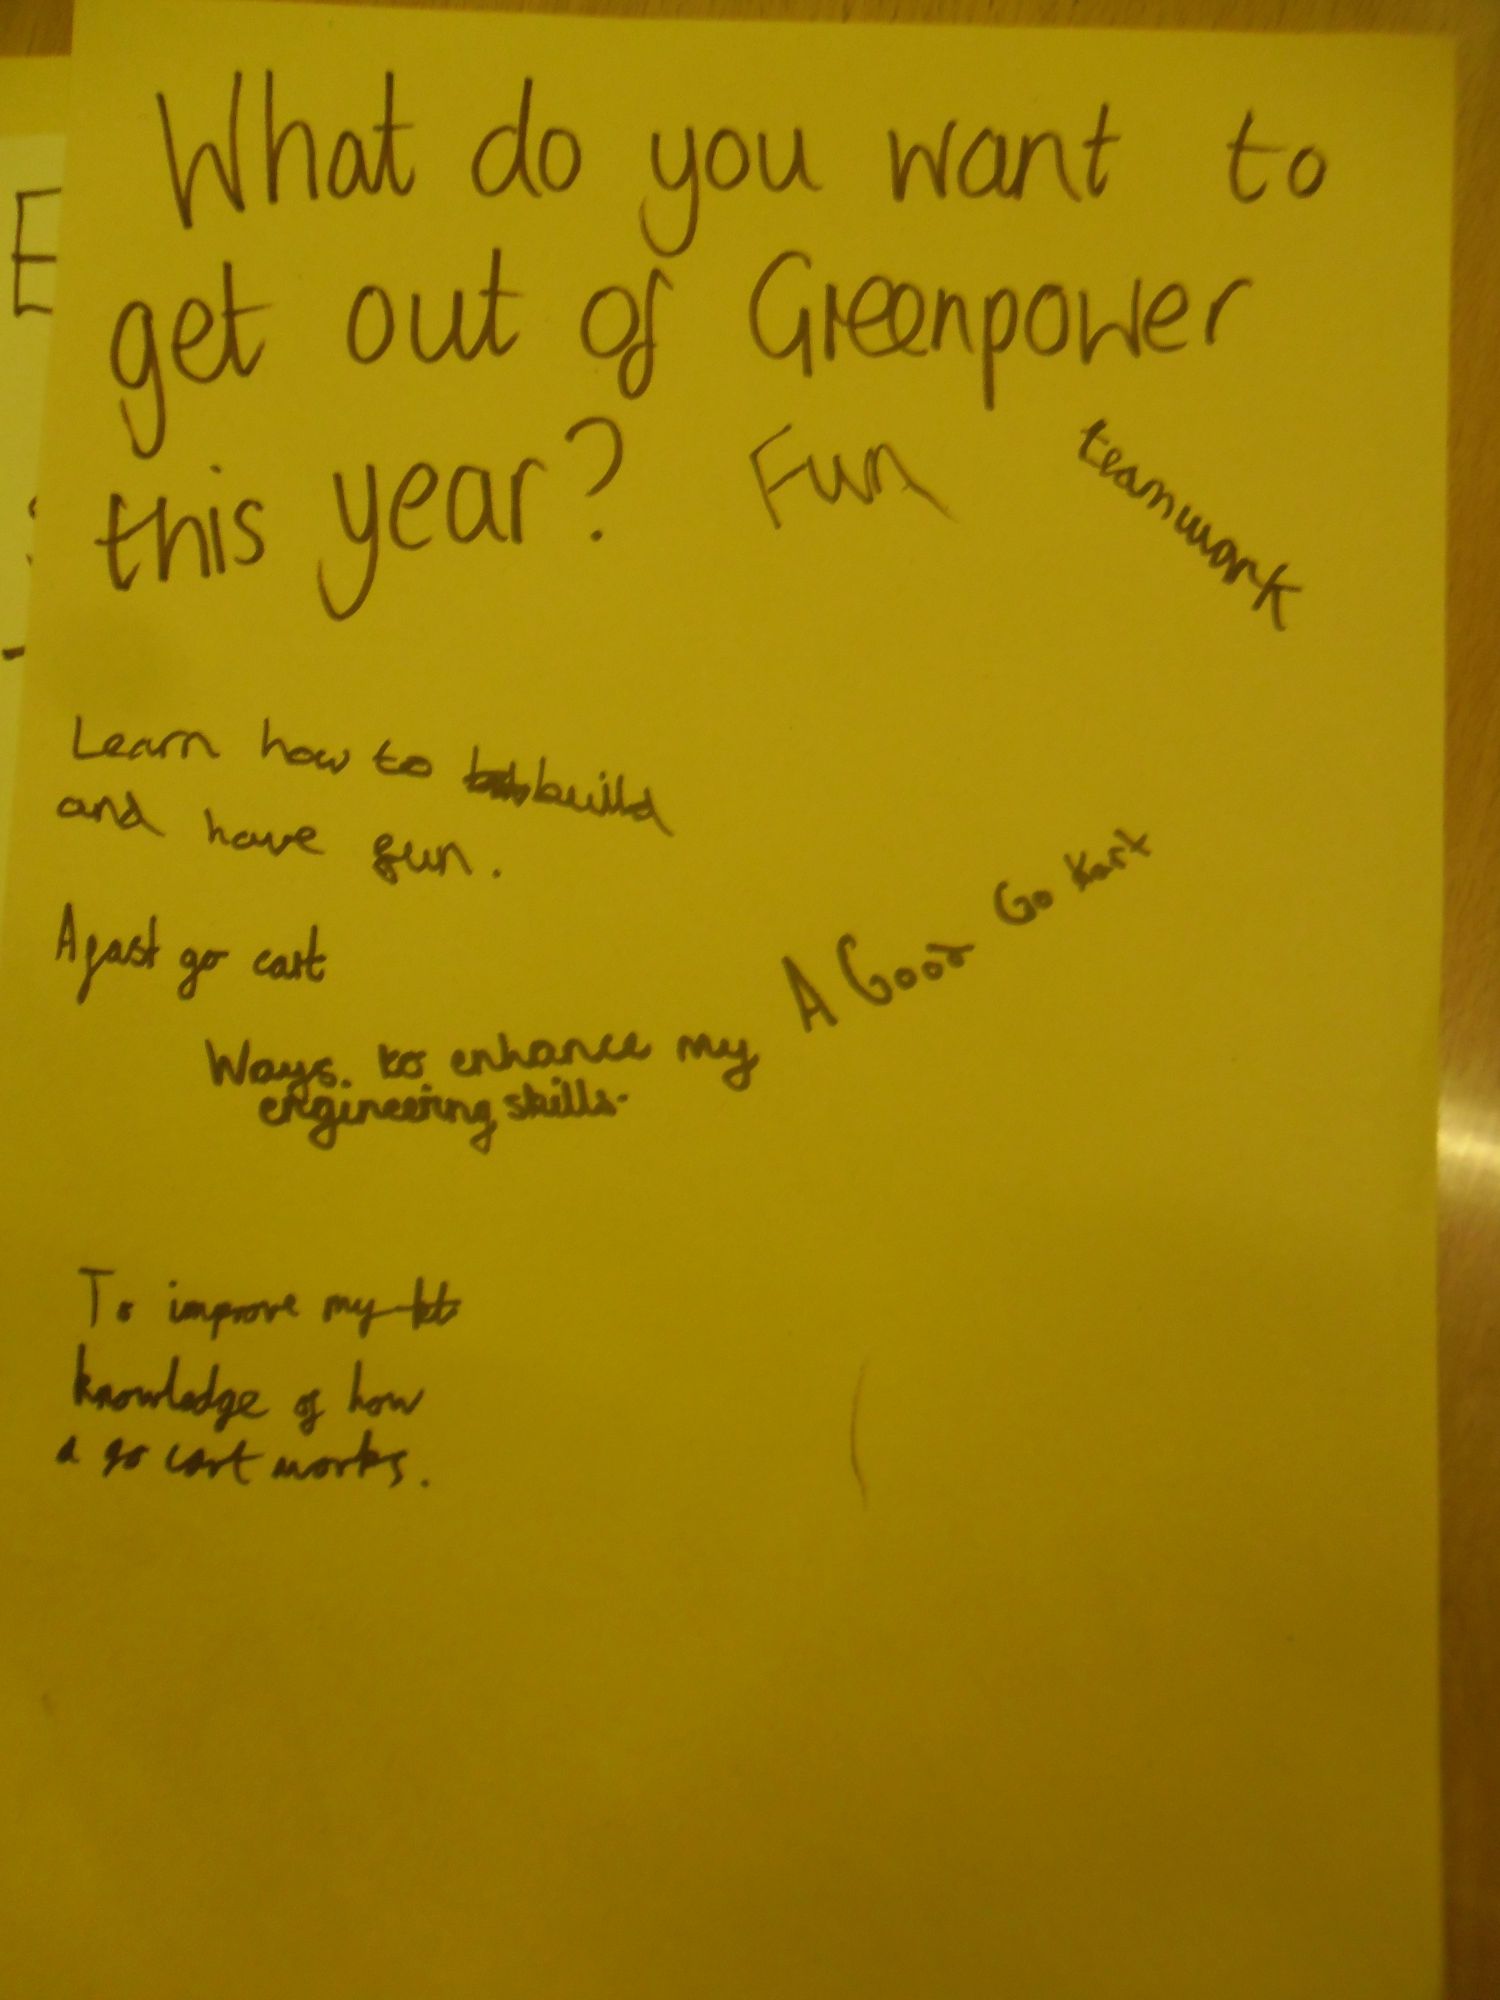 What do you want to
get out of Greenpower
this year?
Fun
teamwork
Learn how to build
and have fun.
A fast go cart
A Good Go Kart
Ways. to enhance my
engineering skills.
To improve my
knowledge of how
a go cart works.
E